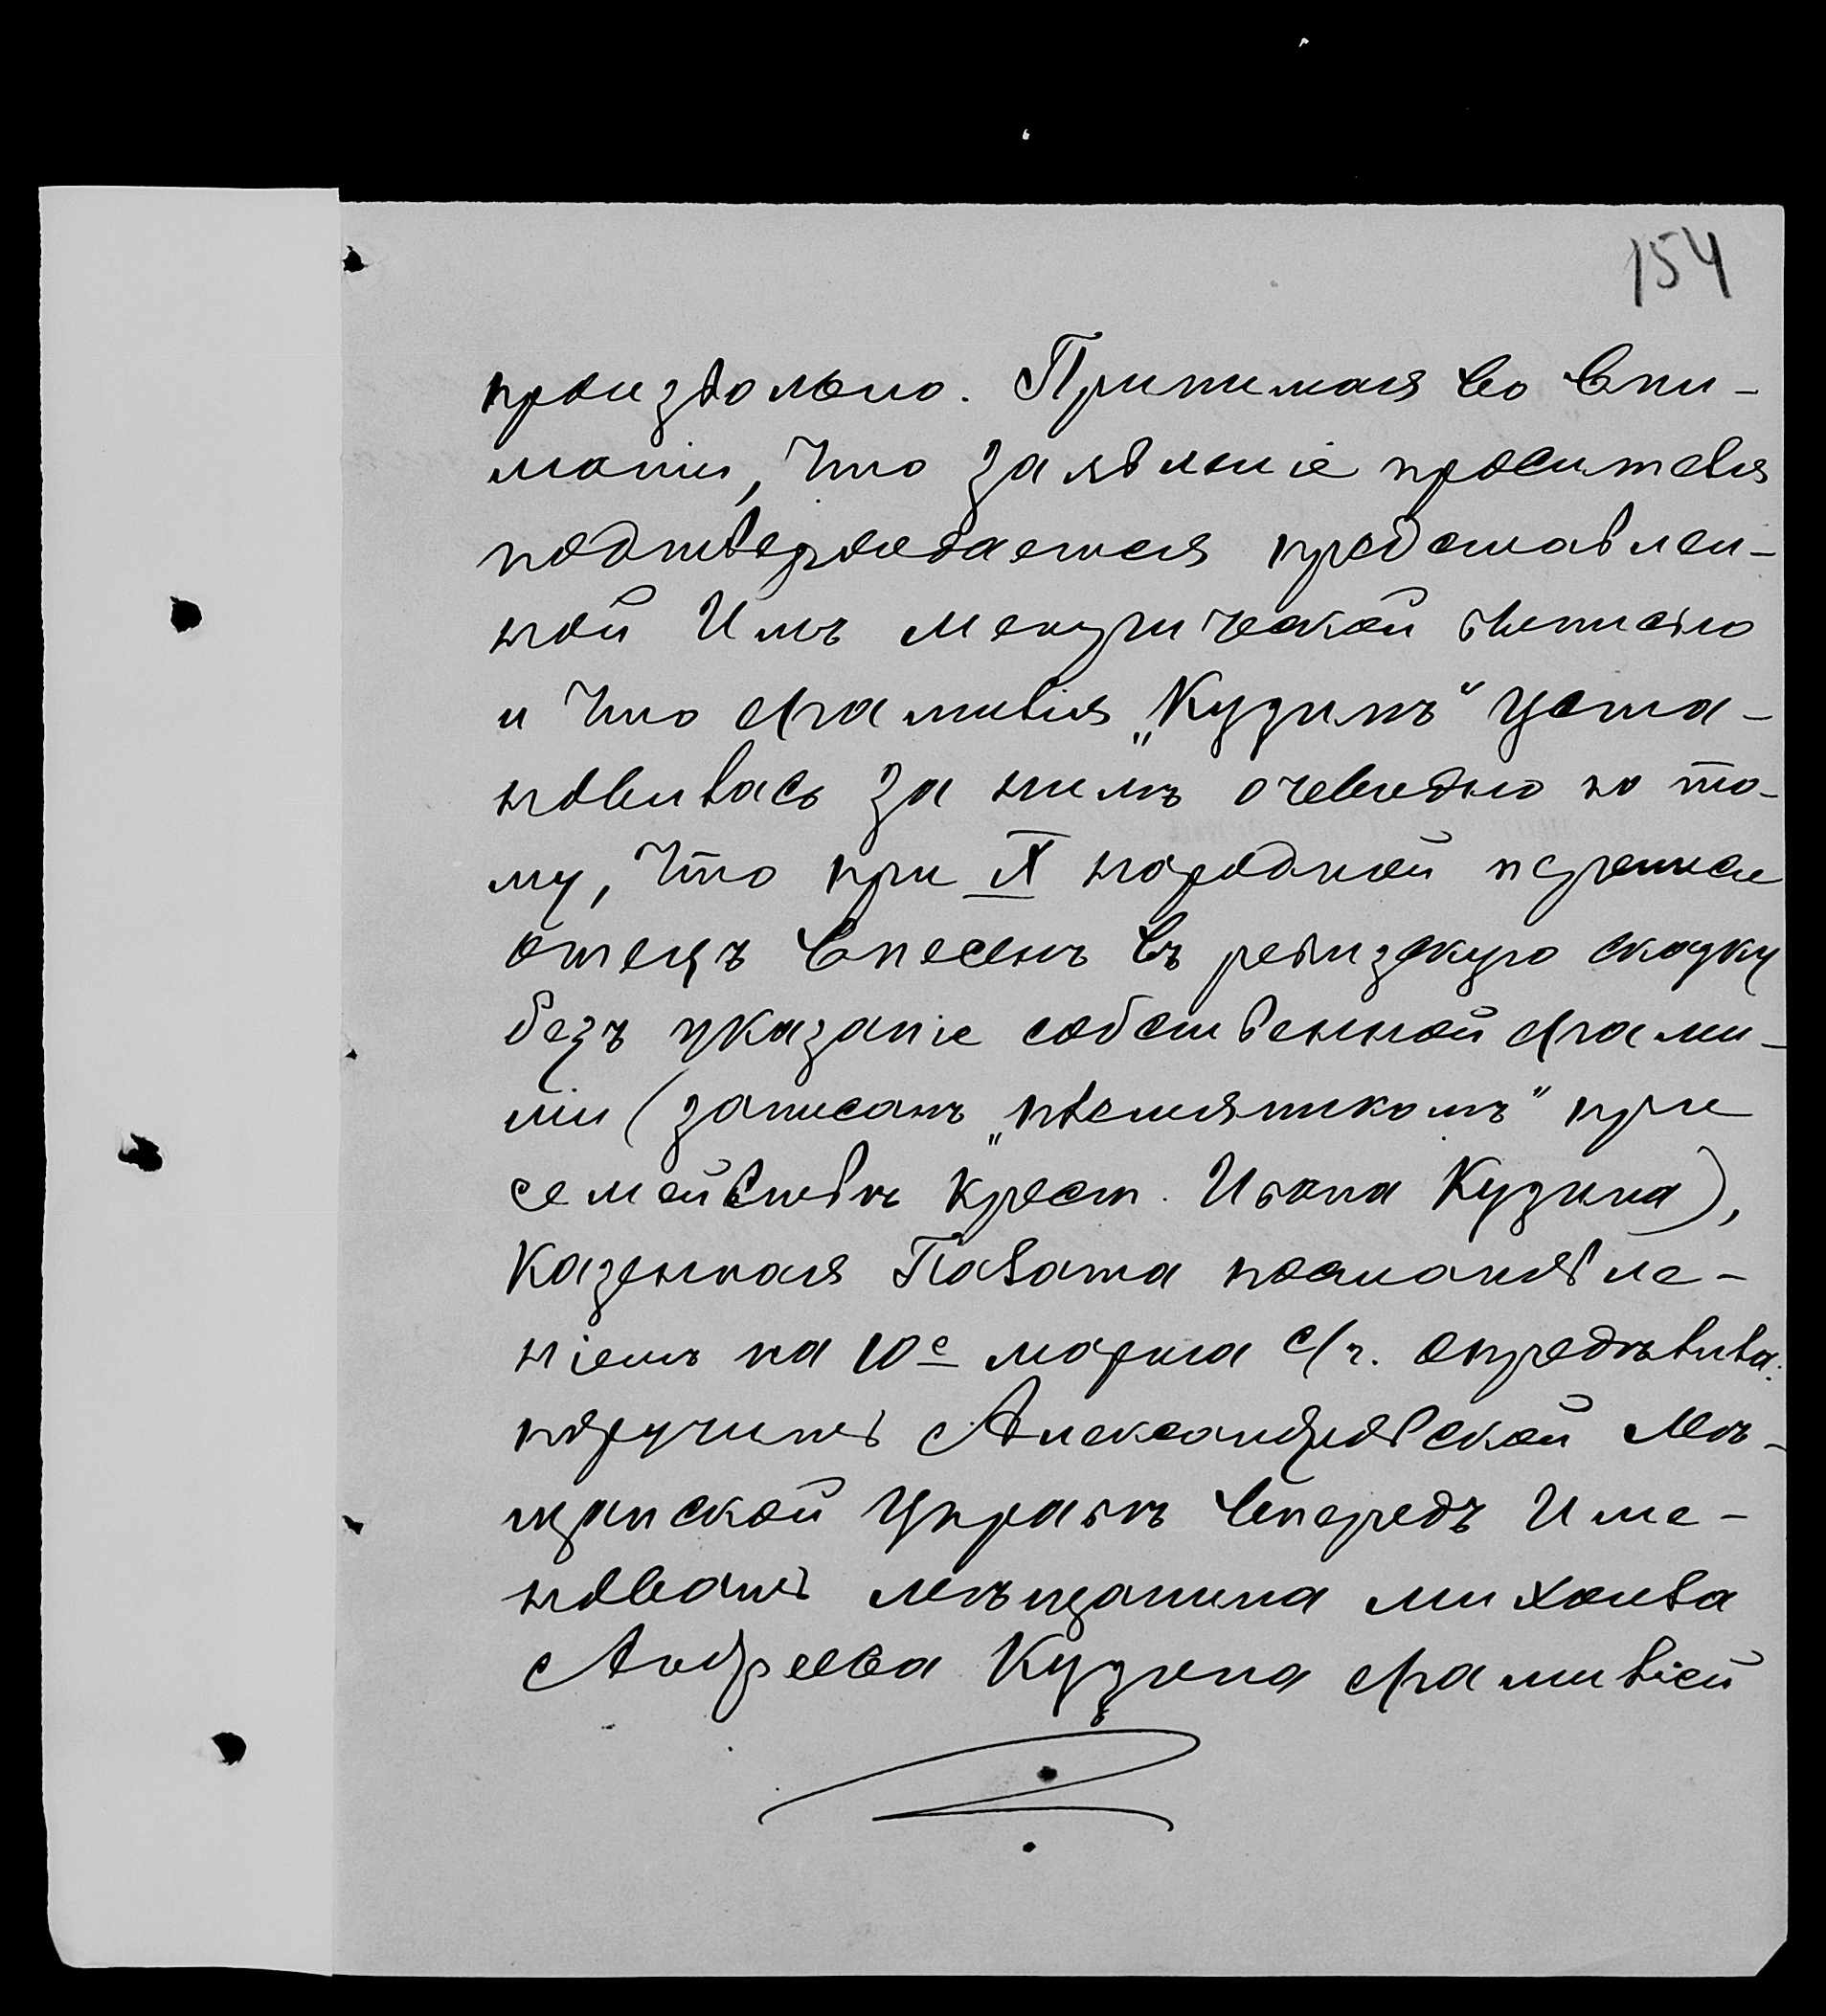 154
произвольно. Принимая во вни-
маніи, что заявленіе просителя
подтверждается представлен-
ной имъ метрической выписью
и что фамилія „Кузинъ" уста-
новилась за нимъ очевидно по то-
му, что при IX народной переписи
отецъ внесенъ въ ревизскую сказку
безъ указаніе собственной фами-
ліи (записанъ „племянникомъ" при
семействѣ крест. Ивана Кузина),
Казенная Палата постановле-
ніемъ на 10е марта с/г. опредѣлила:
поручить Александровской Мѣ-
щанской Управѣ впередъ име-
новать мѣщанина Михаила
Андреева Кузина фамиліей